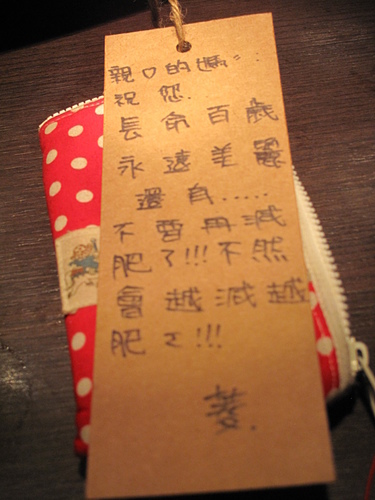 親♡的媽ミ:
祝 您.
長命百歲
永遠美麗
還有.....
不要再減
肥了!!!不然
會越減越
肥ㄛ!!!
菱.